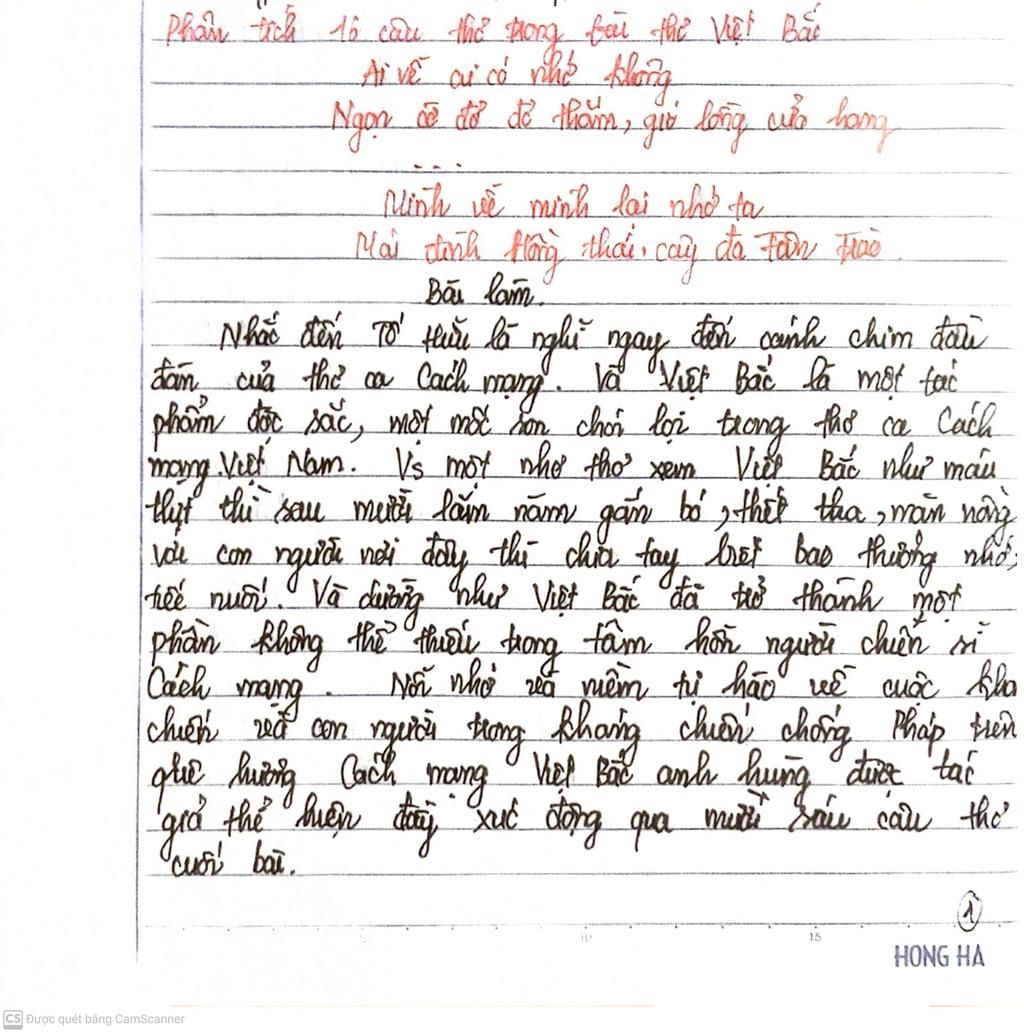 Phân tích 16 câu thơ trong bài thơ Việt Bắc
Ai về ai có nhớ không
Ngọn cờ đỏ đỏ thắm, gió lồng cửa hang
...
Mình về mình lại nhớ ta
Mái đình Hồng thái, cây đa Tân Trào.
Bài làm.
Nhắc đến Tố Hữu là nghĩ ngay đến cánh chim đầu
đàn của thơ ca Cách mạng. Và Việt Bắc là một tác
phẩm đặc sắc, một mốc son chói lọi trong thơ ca Cách
mạng Việt Nam. Vs một nhà thơ xem Việt Bắc như máu
thịt thì sau mười lăm năm gắn bó, thiết tha, mặn nồng
với con người nơi đây thì chia tay biết bao thương nhớ,
tiếc nuối. Và dường như Việt Bắc đã trở thành một
phần không thể thiếu trong tâm hồn người chiến sĩ
Cách mạng. Nỗi nhớ và niềm tự hào về cuộc khá
chiến và con người trong kháng chiến chống Pháp trên
quê hương Cách mạng Việt Bắc anh hùng được tác
giả thể hiện đầy xúc động qua mười sáu câu thơ
cuối bài.
1
10 15
HONG HA
CS Được quét bằng CamScanner